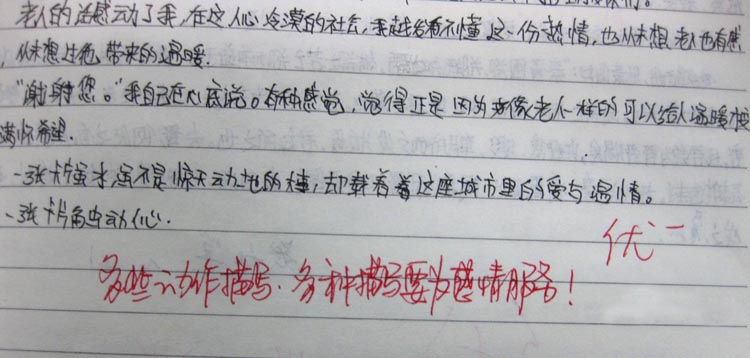 老人的话感动了我,在这人心冷漠的社会,我越给看不懂这一份热情,也从未想老人也有感
,从未想过他带来的温暖.
"谢谢您。"我自己在心底说。有种感觉,觉得正是因为有像老人一样的可以给人温暖
满怀希望.
一张卡虽小,虽不是惊天动地的大事,却载着着这座城市里的爱与温情。
一张卡片触动人心.
优-
多些动作描写.各种描写要为感情服务!